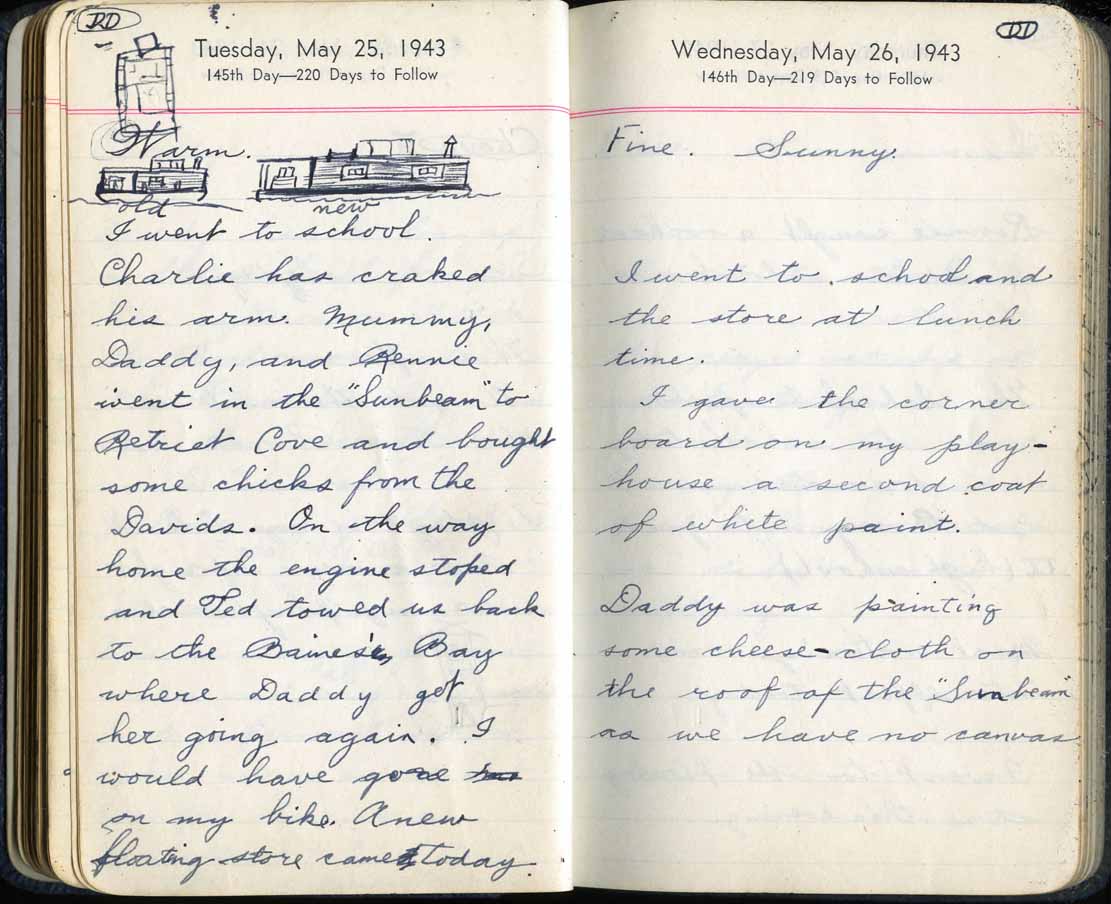 RD
Tuesday, May 25, 1943
145th Day—220 Days to Follow
Warm.
old new
I went to school.
Charlie has craked
his arm. Mummy,
Daddy, and Rennie
went in the "Sunbeam" to
Retriet Cove and bought
some chicks from the
Davids. On the way
home the engine stoped
and Ted towed us back
to the Baines's, Bay
where Daddy got
her going again. I
would have gone
on my bike. A new
floating store came today.
Wednesday, May 26, 1943
146th Day—219 Days to Follow
Fine. Sunny.
I went to school and
the store at lunch
time.
I gave the corner
board on my play-
house a second coat
of white paint.
Daddy was painting
some cheese-cloth on
the roof of the "Sunbeam"
as we have no canvas